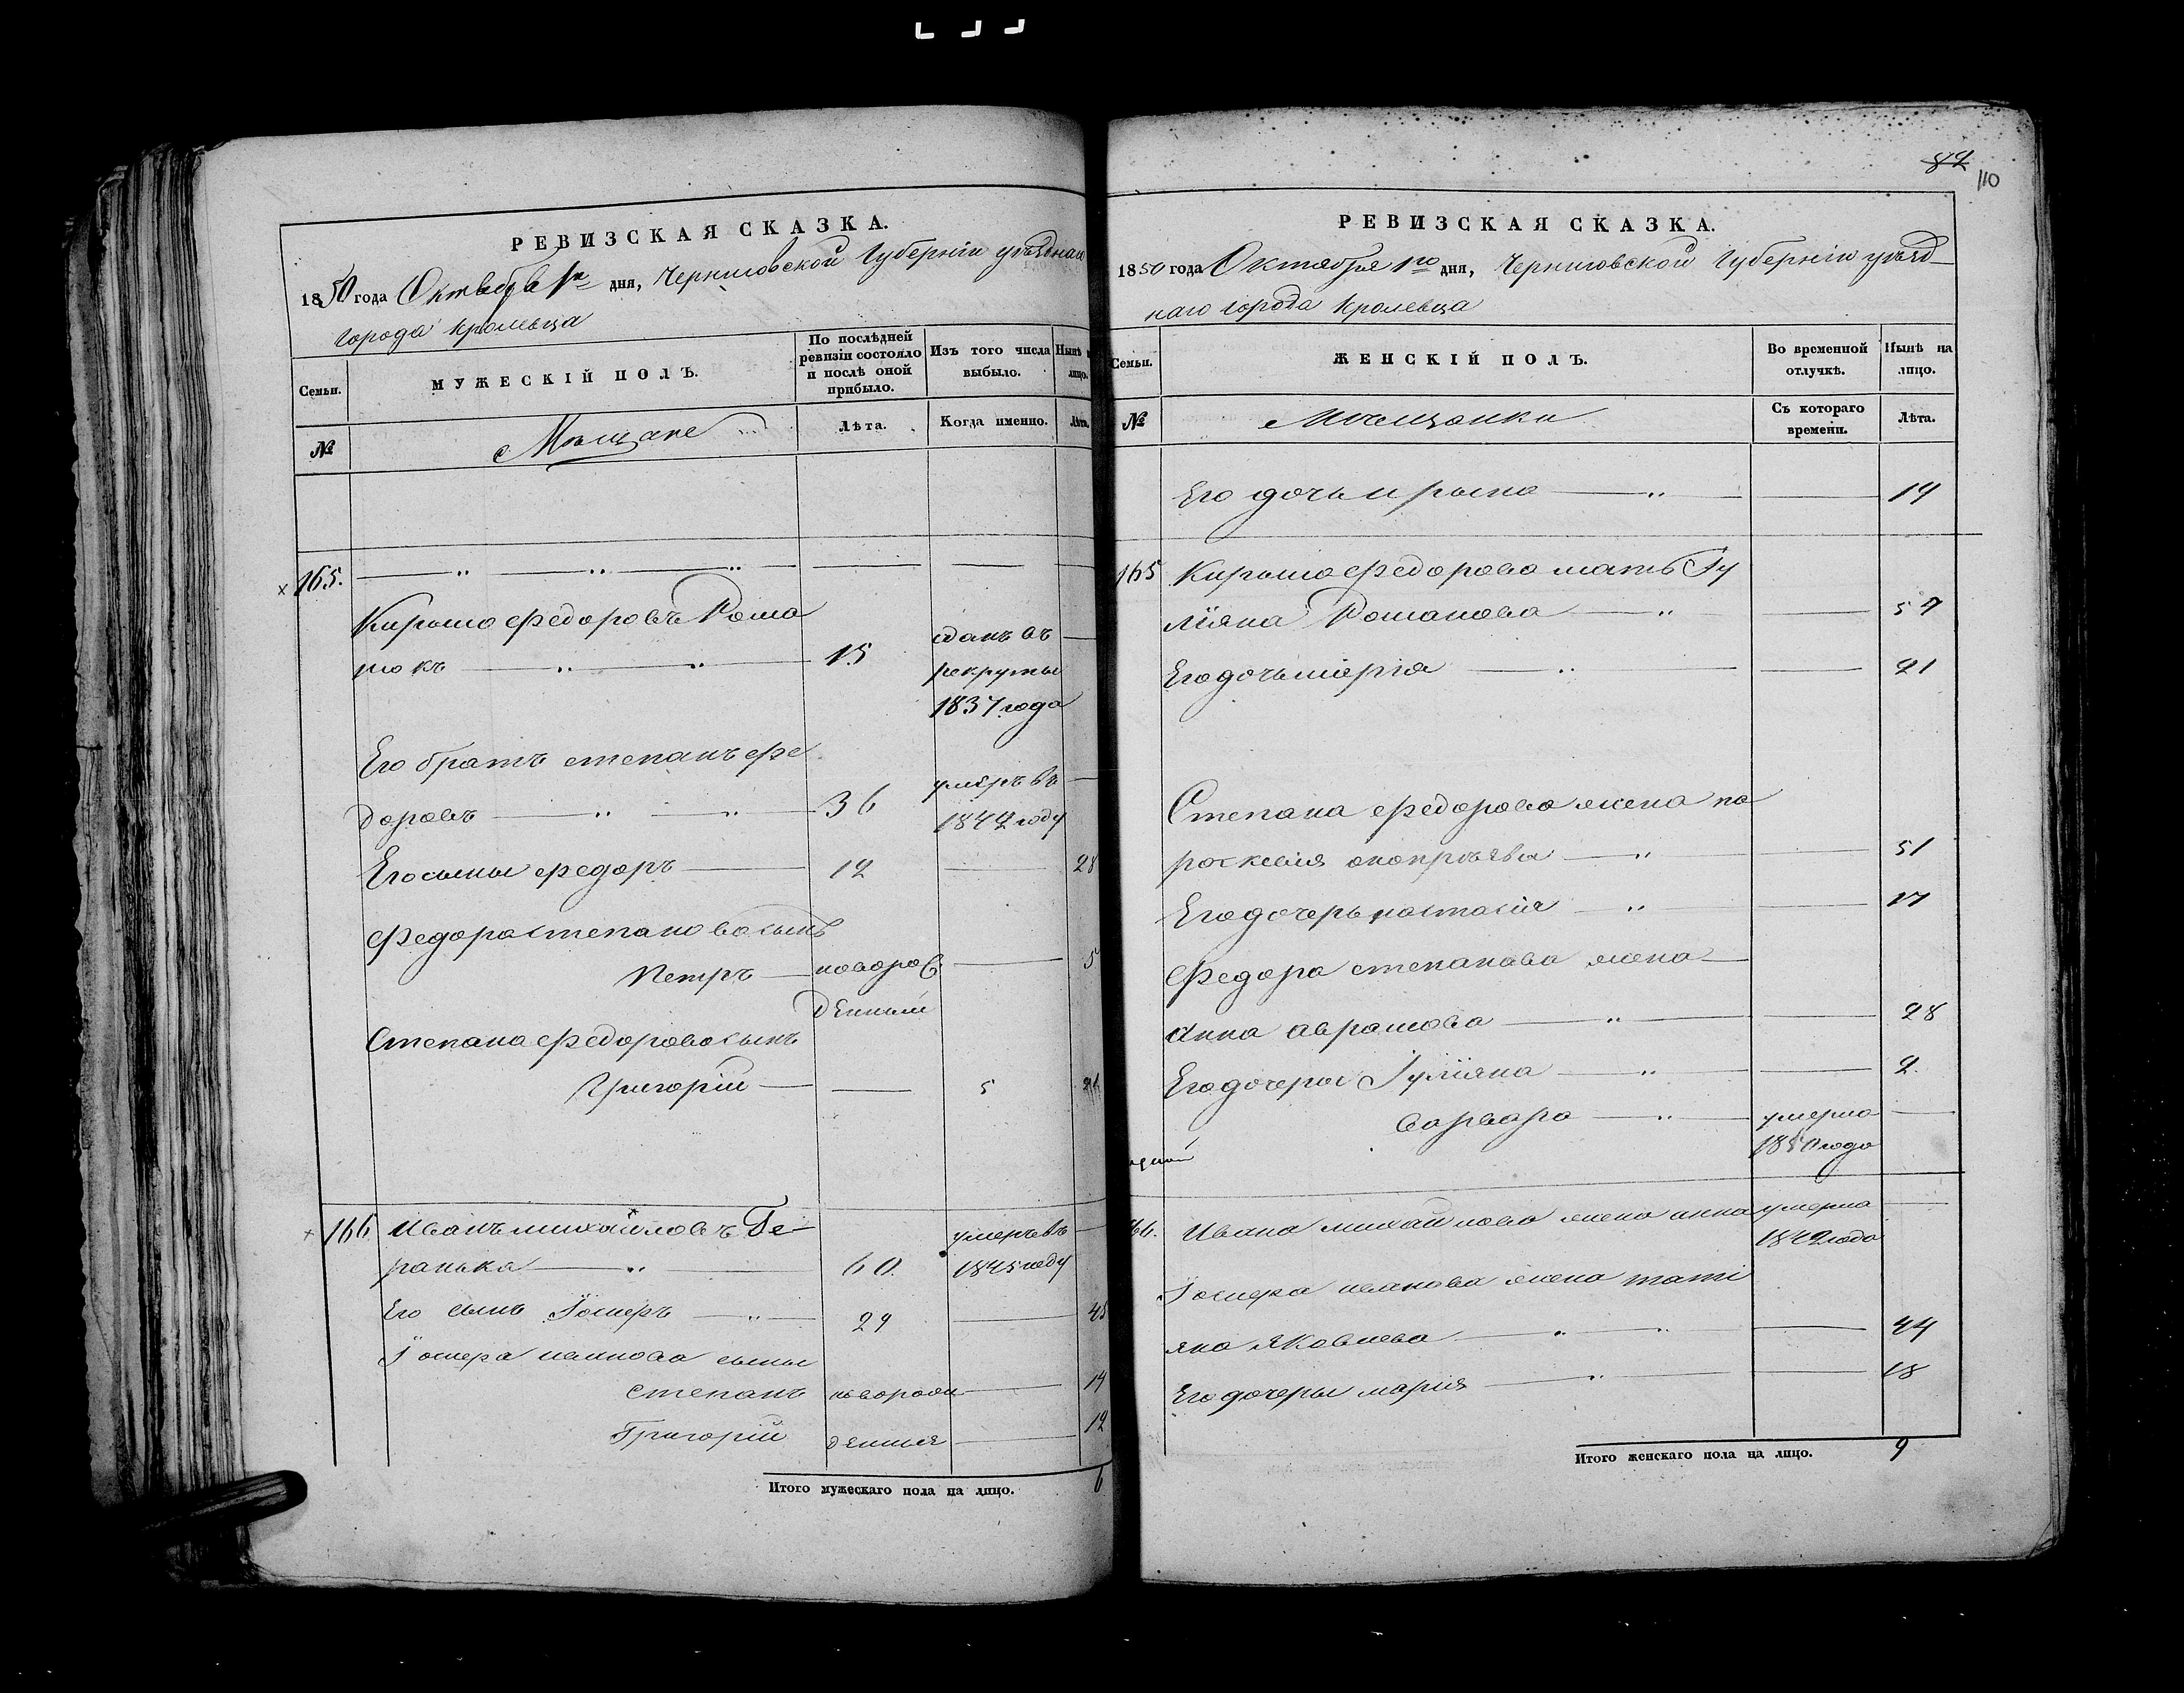 РЕВИЗСКАЯ СКАЗКА.
1850 года Октября 1го дня, Черниговской Губерніи уѣзднаго
города Кролевца
Семьи.
МУЖЕСКІЙ ПОЛЪ.
По послѣдней ревизіи состояло и послѣ оной прибыло.
Изъ того числа выбыло.
Нынѣ
лицо.
№
Мѣщане
Лѣта.
Когда именно.
Лѣта.
165.
Кирыло Федоровъ Рома
нюкъ 15 сданъ въ
рекруты
1837 года
Его братъ степанъ Фе
доровъ 36 умеръ въ
1844 году
Его сыны Федоръ 12 28
Федора степанова сынъ
Петръ новорож 5
денный
Степана Федорова сынъ
Григорій 5 21
166 Иванъ михайловъ Ге-
ранька 60. умеръ въ
1845 году
Его сынъ Іосиеръ 29 45
Іосиера иванова сыны
степанъ новорож 14
Григорій денныя 12
Итого мужескаго пола на лицо. 6
82
110
РЕВИЗСКАЯ СКАЗКА.
1850 года Октября 1го дня, Черниговской Губерніи уѣзд
наго города Кролевца
Семьи.
ЖЕНСКІЙ ПОЛЪ.
Во временной отлучкѣ.
Нынѣ на лицо.
№
Мѣщанки
Съ котораго времени.
Лѣта.
Его дочь ирына 14
165 Кирыло Федорова мать Іу
ліяна Романова 57
Его дочь марія 21
Степана Федорова жена па
роскевія 51
Его дочерь настасія 17
Федора степанова жена
Анна аврамова 28
Его дочеры Іуліяна 2.
варвара умерла
1850 года
166. Ивана михайлова жена анна умерла
1842 года
Іосиера иванова жена таті
яна Яковлева 44
Его дочеры марія 18
Итого женскаго пола на лицо. 9